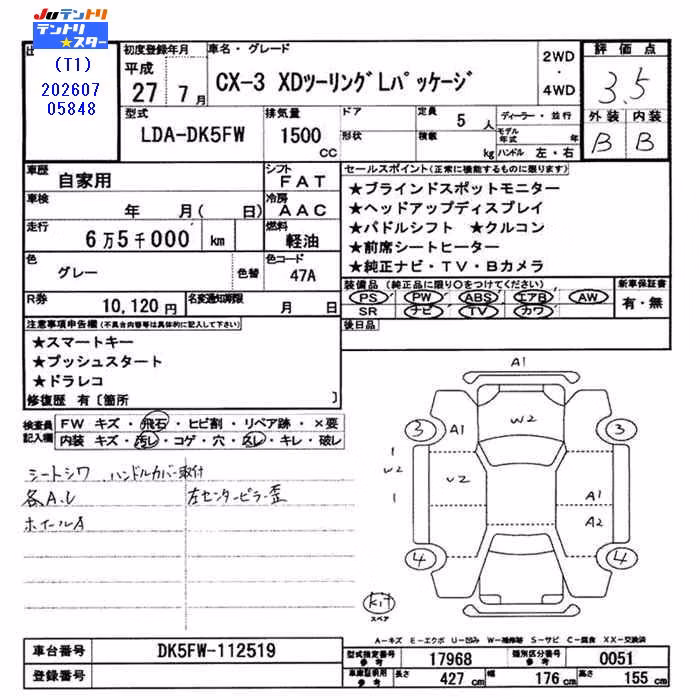 JUテントリ
テントリ★スター
(T1)
202607
05848
初度登録年月
平成
27年 7月
車名・グレード
CX-3 XDツーリングLパッケージ
2WD
・
4WD
評価点
3.5
外装 内装
B B
型式
LDA-DK5FW
排気量
1500 CC
ドア
形状
定員 5人
積載 kg
ディーラー・並行
モデル年式 年
ハンドル 左・右
車歴
自家用
シフト
FAT
車検
年 月( 日)
冷房
AAC
走行
6万5千000 km
燃料
軽油
色
グレー
色替
色コード
47A
R券 10,120円
名変通知期限 月 日
セールスポイント(正常に機能するものに限ります)
★ブラインドスポットモニター
★ヘッドアップディスプレイ
★パドルシフト ★クルコン
★前席シートヒーター
★純正ナビ・TV・Bカメラ
装備品(純正品に限り○をつけてください)
PS PW ABS エアB AW
SR ナビ TV カワ
新車保証書
有・無
後日品
注意事項申告欄(不具合内容等は具体的に記入して下さい)
★スマートキー
★プッシュスタート
★ドラレコ
修復歴 有〔箇所 〕
検査員記入欄
FW キズ・飛石・ヒビ割・リペア跡・×要
内装 キズ・汚レ・コゲ・穴・スレ・キレ・破レ
シートシワ ハンドルカバー取付
各A.U 左センターピラー歪
ホイールA
A1
W2
3 A1 3
1
W2
1
U2
A1
A2
4 4
kit
スペア
A-キズ E-エクボ U-凹み W-補修跡 S-サビ C-腐食 XX-交換済
車台番号 DK5FW-112519
登録番号
型式指定番号 参考 17968
類別区分番号 参考 0051
車庫証明用 参考 長さ 427 cm 幅 176 cm 高さ 155 cm